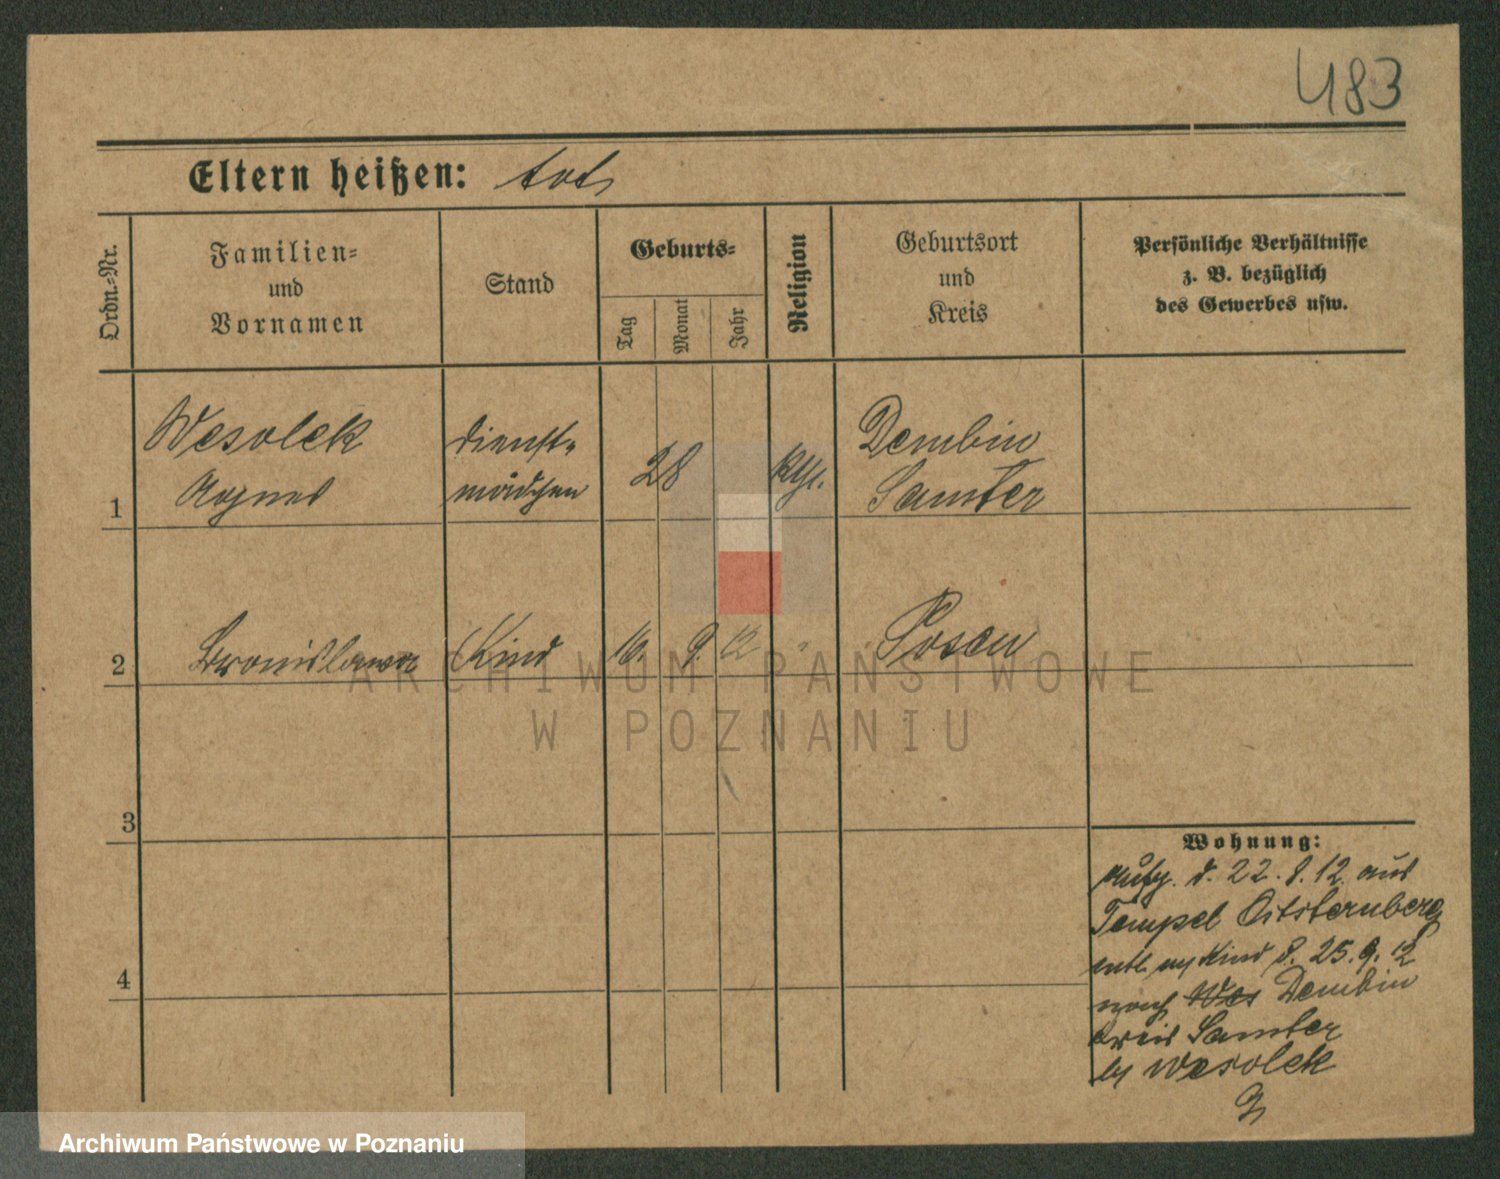 483
Eltern heißen: tot
Ordn.-Nr.
Familien-
und
Vornamen
Stand
Geburts-
Tag
Monat
Jahr
Religion
Geburtsort
und
Kreis
Persönliche Verhältnisse
z. B. bezüglich
des Gewerbes usw.
1
Wesolek
Agnes
Dienst-
mädchen
28
kth.
Dembin
Samter
2
Bronislawa
Kind
16. 9. 12
"
Posen
3
4
Wohnung:
d. 22. 8. 12 aus
Tempel Oststernberg
entl. Kind 25. 9. 12
nach Wes Dembin
Kreis Samter
by Wesolek
ARCHIWUM PAŃSTWOWE
W POZNANIU
Archiwum Państwowe w Poznaniu